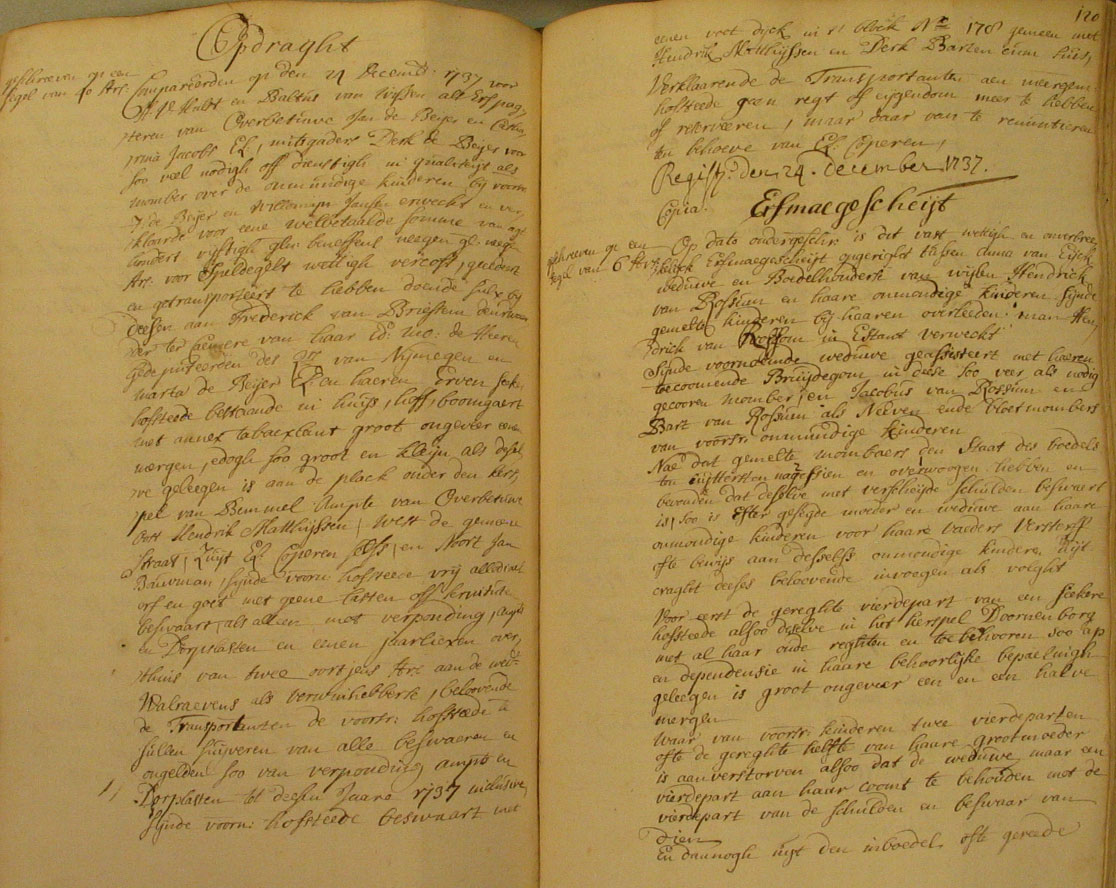 Opdraght
geschreven op een
segel van 40 st.
Compareerden op den 24 Decemb: 1737 voor
W: V: Hattt en Baltus van Wissen als Erfpag,
teren van Overbetuwe Jan de Beijer en Cathar,
rina Jacobs El, mitsgaders Derk de Beijer voor
soo veel nodigh off dienstigh in qualiteijt als
momber over de onmundige kinderen bij voorn
J: de Beijer en Willemijn Janssen erweckt en ver,
klaarde voor eene welbetaalde somme van
hondert vijftigh gln beneffens neegen gl: neegen
st: voor Spuldegelt wettigh vercoft, gecedeert
en getransporteert te hebben doende sulx bij
deesen aan Frederick van Brieffem deurwaar
der ter Camere van haar Ed: Mo: de Heeren
Gedeputeerden des Qrs van Nijmegen en
Marta de Beijer El: en haeren Erven seker
hofsteede bestaande in huijs, hoff, boomgaert
met annex tabacxlant groot ongeveer eenen
mergen, edogh soo groot en kleijn als desel
ve geleegen is aan de plack onder den kers,
pel van Bemmel Ampte van Overbetuwe
Oost Hendrik Matthijssen, West de gemeene
straat, Zuijt El: Coperen selfs, en Noort Jan
Bouwman, sijnde voorn: hofsteede vrij allodiael
erf en goet met geene lasten off servituten
beswaart, als alleen met verponding, ampts
en Dorpslasten en eenen jaarlixen over,
thuns van twee oortjens st: aan de wed:
Walraevens als verwinhebberse, beloovende
de Transportanten de voors: hofsteede te
sullen suijveren van alle beswaeren en
ongelden soo van verponding, ampts en
Dorplasten tot deesen Jaare 1737 inclusive
sijnde voorn: hofsteede beswaart met
120
eenen voet dijck in 't block No 178 gemeen met
Hendrik Matthijssen en Derk Barten cum suis,
Verklaarende de Transportanten aen meergem:
hofsteede geen regt of eijgendom meer te hebben
of reserveeren, maar daar van te renuntieeren
ten behoeve van El: Coperen,
Regist: den 24. December 1737.
Copia. Erfmaegescheijt
geschreven op een
segel van 6 st:
Op dato ondergeschr: is dit vast wettigh en onverbreek
lijck Erfmaegescheijt opgeright tussen Anna van Eijck
weduwe en Boedelhoudersse van wijlen Hendrick
van Rossum en haare onmondige kinderen sijnde
gemelte kinderen bij haaren overleeden man Hen,
drick van Rossum in Estant verweckt
Sijnde voornoemde weduwe geassisteert met haeren
toecoomende Bruijdegom in desse soo ver als nodig
gecooren momber, en Jacobus van Rossum en
Bart van Rossum als Neeven ende bloetmombers
van voors: onmundige kinderen
Nae dat gemelte mombaers den Staat des boedels
ten uijttersten nagesien en overwoogen hebben en
bevonden dat deselve met verscheijde schulden beswaert
is, soo is Efter geseyde moeder en weduwe aan haare
onmondige kinderen voor haare vaeders Verstorff
ofte bewijs aan desselfs onmondige kindere uijt
craght deeses beloovende invoegen als volght
Voor eerst de gereghte vierdepart van een seekere
hofsteede alsoo deselve in het kerspel Doornenborg
met al haar oude reghten en toebehooren soo ap
en dependensie in haare behoorlijke bepaelingh
geleegen is groot ongeveer een en een halve
mergen
Waar van voors: kinderen twee vierdeparten
ofte de gereghte helfte van haare grootmoeder
is aanverstorven alsoo dat de weduwe maar een
vierdepart aan haar coomt te behouden met de
vierdepart van de schulden en beswaar van
dien
En dannogh uijt den inboedel ofte gereede